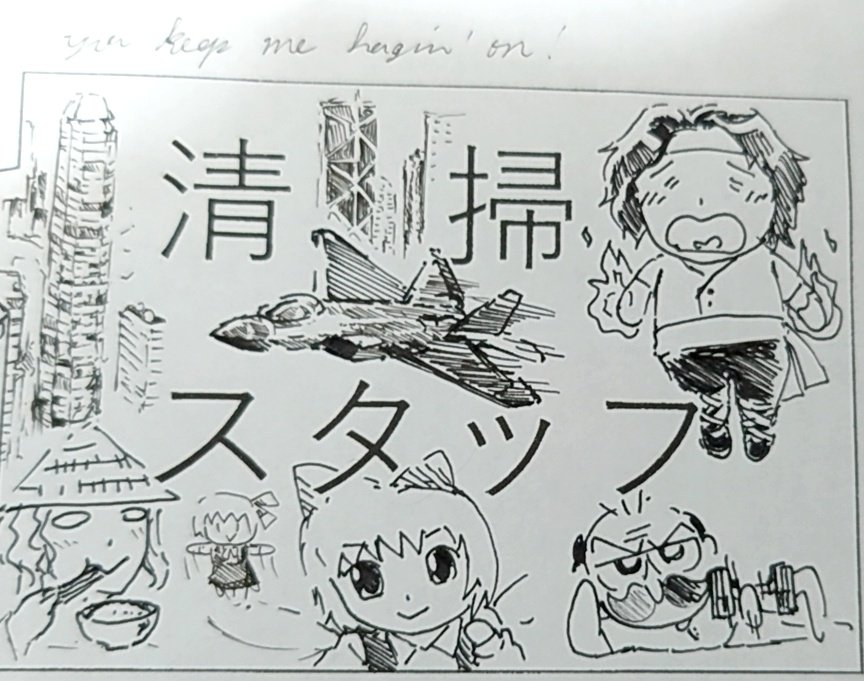 you keep me hagin' on!
清掃
スタッフ